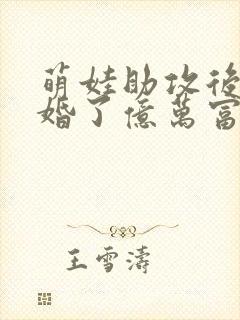 萌娃助攻後
婚了億萬富
王雪濤